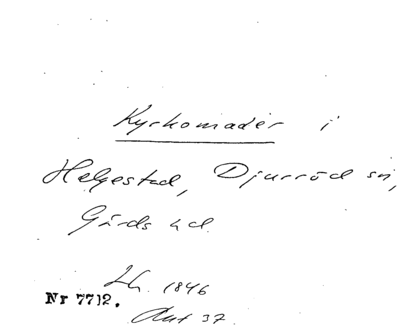 Kyrkomadér i
Helgestad, Djurröd sn,
Gärds hd.
Lh. 1846
Nr 7712.
Aut 37